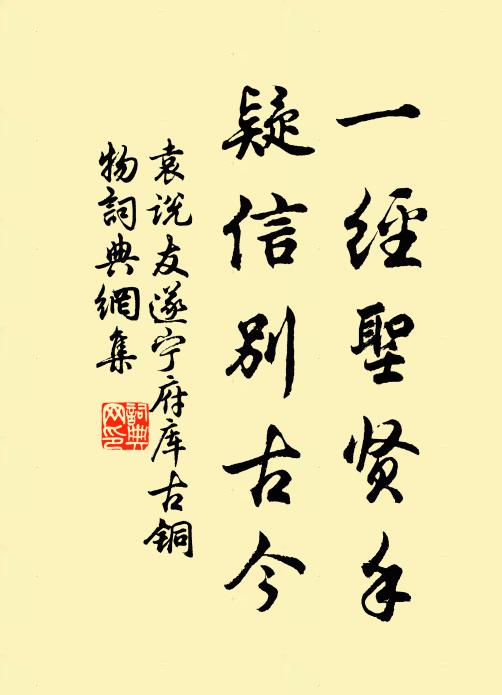 一經聖贤手
疑信別古今
袁说友遂宁府库古铜
物詞典網集
詞典
网印